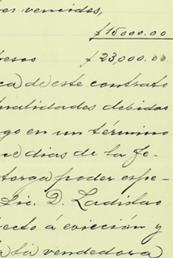 es vencidos,
$15000.00
pesos $23,000.00
ca) de este contrato
nalidades debidas
go en un término
ce dias de la fe-
torga poder espe-
Lic. D. Ladislao
ecto á evicción y
la vendedora